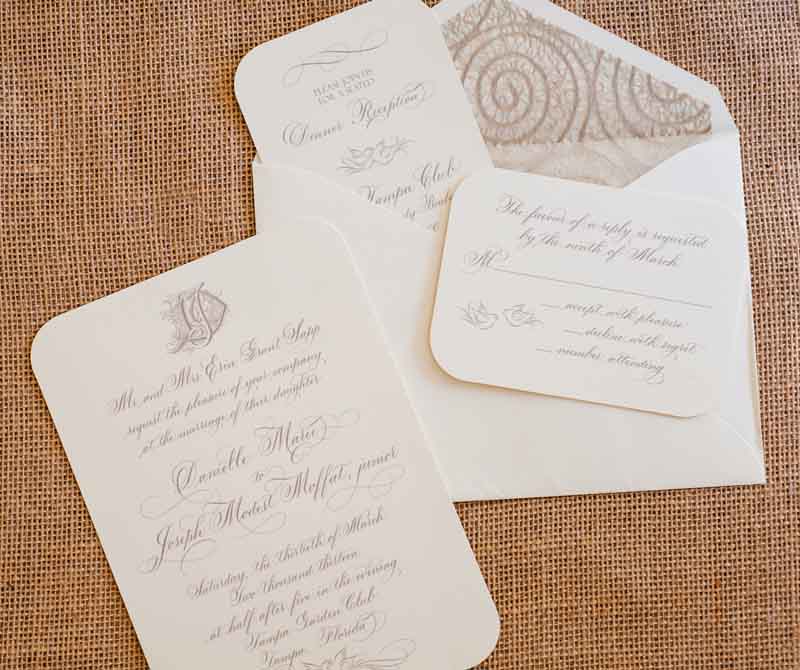 PLEASE JOIN US
FOR A SEATED
Dinner Reception
Tampa Club
The favour of a reply is requested
by the ninth of March
M
accept with pleasure
decline with regret
number attending
Mr. and Mrs. Erin Grant Sapp
request the pleasure of your company,
at the marriage of their daughter
Danielle Marie
to
Joseph Modest Moffat, junior
Saturday, the thirtieth of March
Two thousand thirteen
at half after five in the evening,
Tampa Garden Club
Tampa, Florida